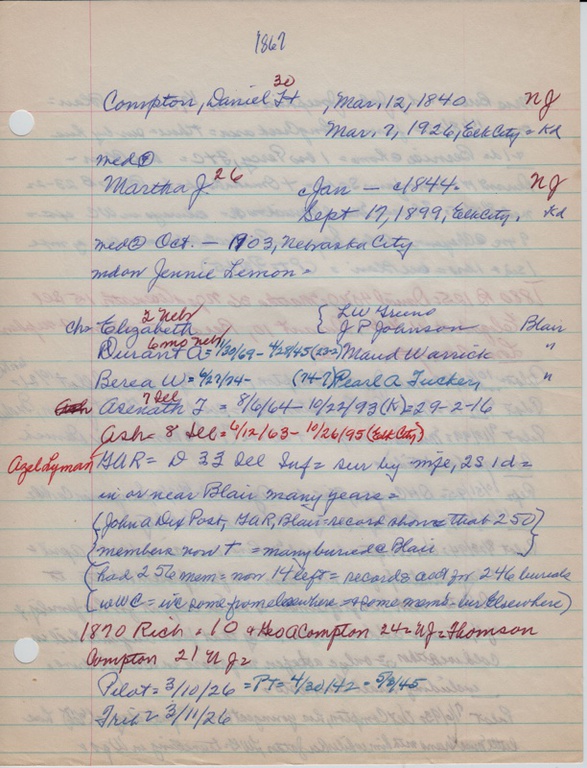 1867
30
Compton, Daniel H , Mar, 12, 1840 NJ
Mar. 7, 1926, Elk City = Kd
med ①
Martha J 26 c Jan — c1844. NJ
Sept 17, 1899, Elk City, Kd
med ② Oct. — 1903, Nebraska City
mdon Jennie Lemon =
2 Nebr
ch= Elizabeth { LW
6 mo nebr { J P Johnson Blair
Durant A = 7/30/69 - 4/28/45 (23-2) Maud Warrick "
Berea W = 6/27/74- (74-7) Pearl A Tucker "
7 Del
Asenath T = 8/6/64 - 10/22/93 (K) = 29-2-16
Ash = 8 Del = 4/12/63 - 10/26/95 (Elk City)
Azel Lyman GAR = D 33 Del Inf = sur by wife, 2S 1d =
in or near Blair many years =
(John A Dix Post, GAR, Blair = record above that 250)
(members now † = many buried @ Blair)
(had 256 mem = now 14 left = records acct for 246 burials
(WWC = inc some from elsewhere = some memb. bur Elsewhere)
1870 Rich = 10 + Geo A Compton 24 = NJ = Thomson
Compton 21 NJ =
Pilot = 3/10/26 = PT = 4/30/42 = 5/3/45
Trib = 3/11/26